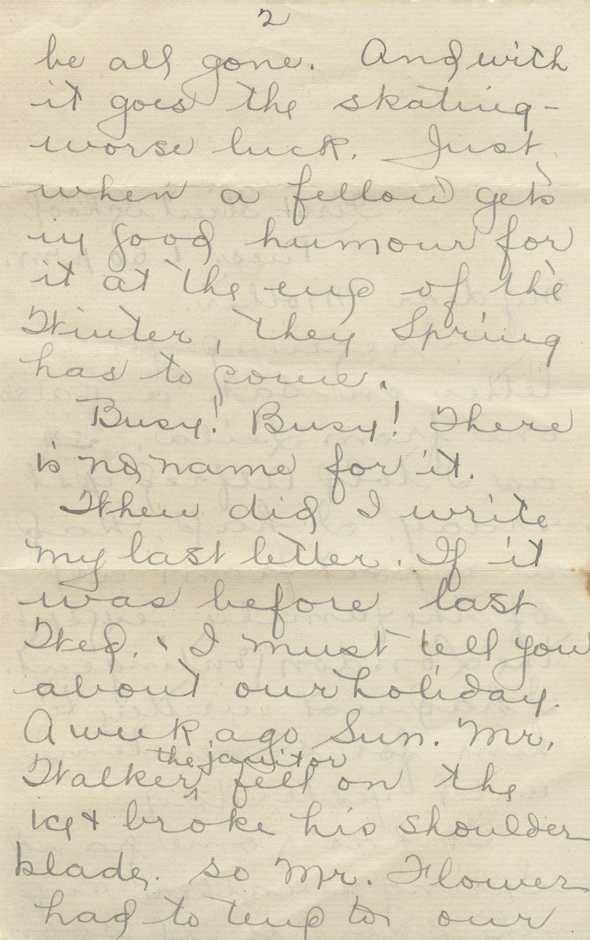 2
be all gone. And with
it goes the skating -
worse luck. Just
when a fellow gets
in good humour for
it at the end of the
Winter, they Spring
has to come.
Busy! Busy! There
is no name for it.
When did I write
my last letter. If it
was before last
Wed. I must tell you
about our holiday.
A week ago Sun. Mr.
the janitor
Walker, fell on the
ice & broke his shoulder
blade. so Mr. Flower
had to tend to our